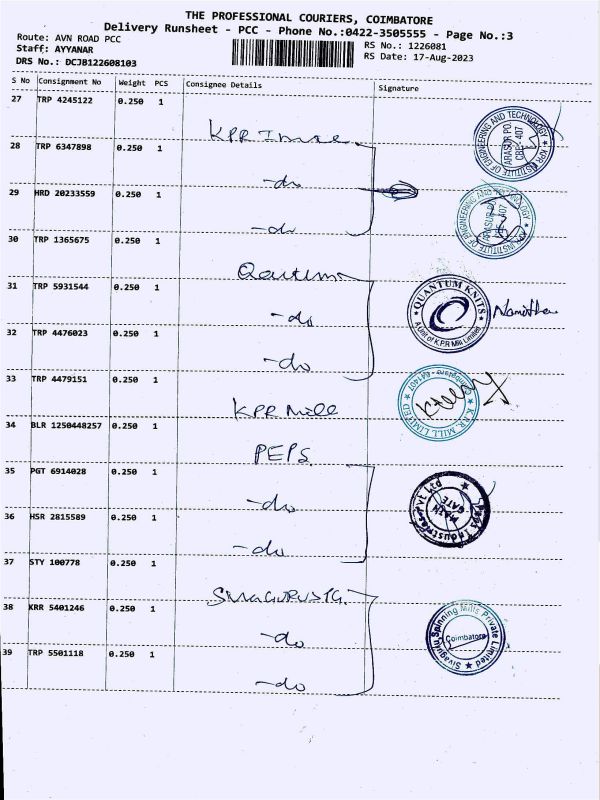 THE PROFESSIONAL COURIERS, COIMBATORE
Delivery Runsheet - PCC - Phone No.:0422-3505555 - Page No.:3
Route: AVN ROAD PCC
RS No.: 1226081
Staff: AYYANAR
RS Date: 17-Aug-2023
DRS No.: DCJB122608103
S No Consignment No Weight PCS Consignee Details Signature
27 TRP 4245122 0.250 1
KPR
KPR INSTITUTE OF ENGINEERING AND TECHNOLOGY
ARASUR PO
CBE - 407
28 TRP 6347898 0.250 1
-do
29 HRD 20233559 0.250 1
-do
KPR INSTITUTE OF ENGINEERING AND TECHNOLOGY
ARASUR PO
CBE - 407
30 TRP 1365675 0.250 1
31 TRP 5931544 0.250 1
-do
QUANTUM KNITS
A Unit of K.P.R Mill Limited
Namitha
32 TRP 4476023 0.250 1
-do
33 TRP 4479151 0.250 1
KPR Mill
K.P.R. MILL LIMITED
Coimbatore - 641407
34 BLR 1250448257 0.250 1
PEPS
35 PGT 6914028 0.250 1
-do
Industries Pvt Ltd
MAIN
GATE
36 HSR 2815589 0.250 1
-do
37 STY 100778 0.250 1
38 KRR 5401246 0.250 1
-do
Sivaguru Spinning Mills Private Limited
Coimbatore
39 TRP 5501118 0.250 1
-do